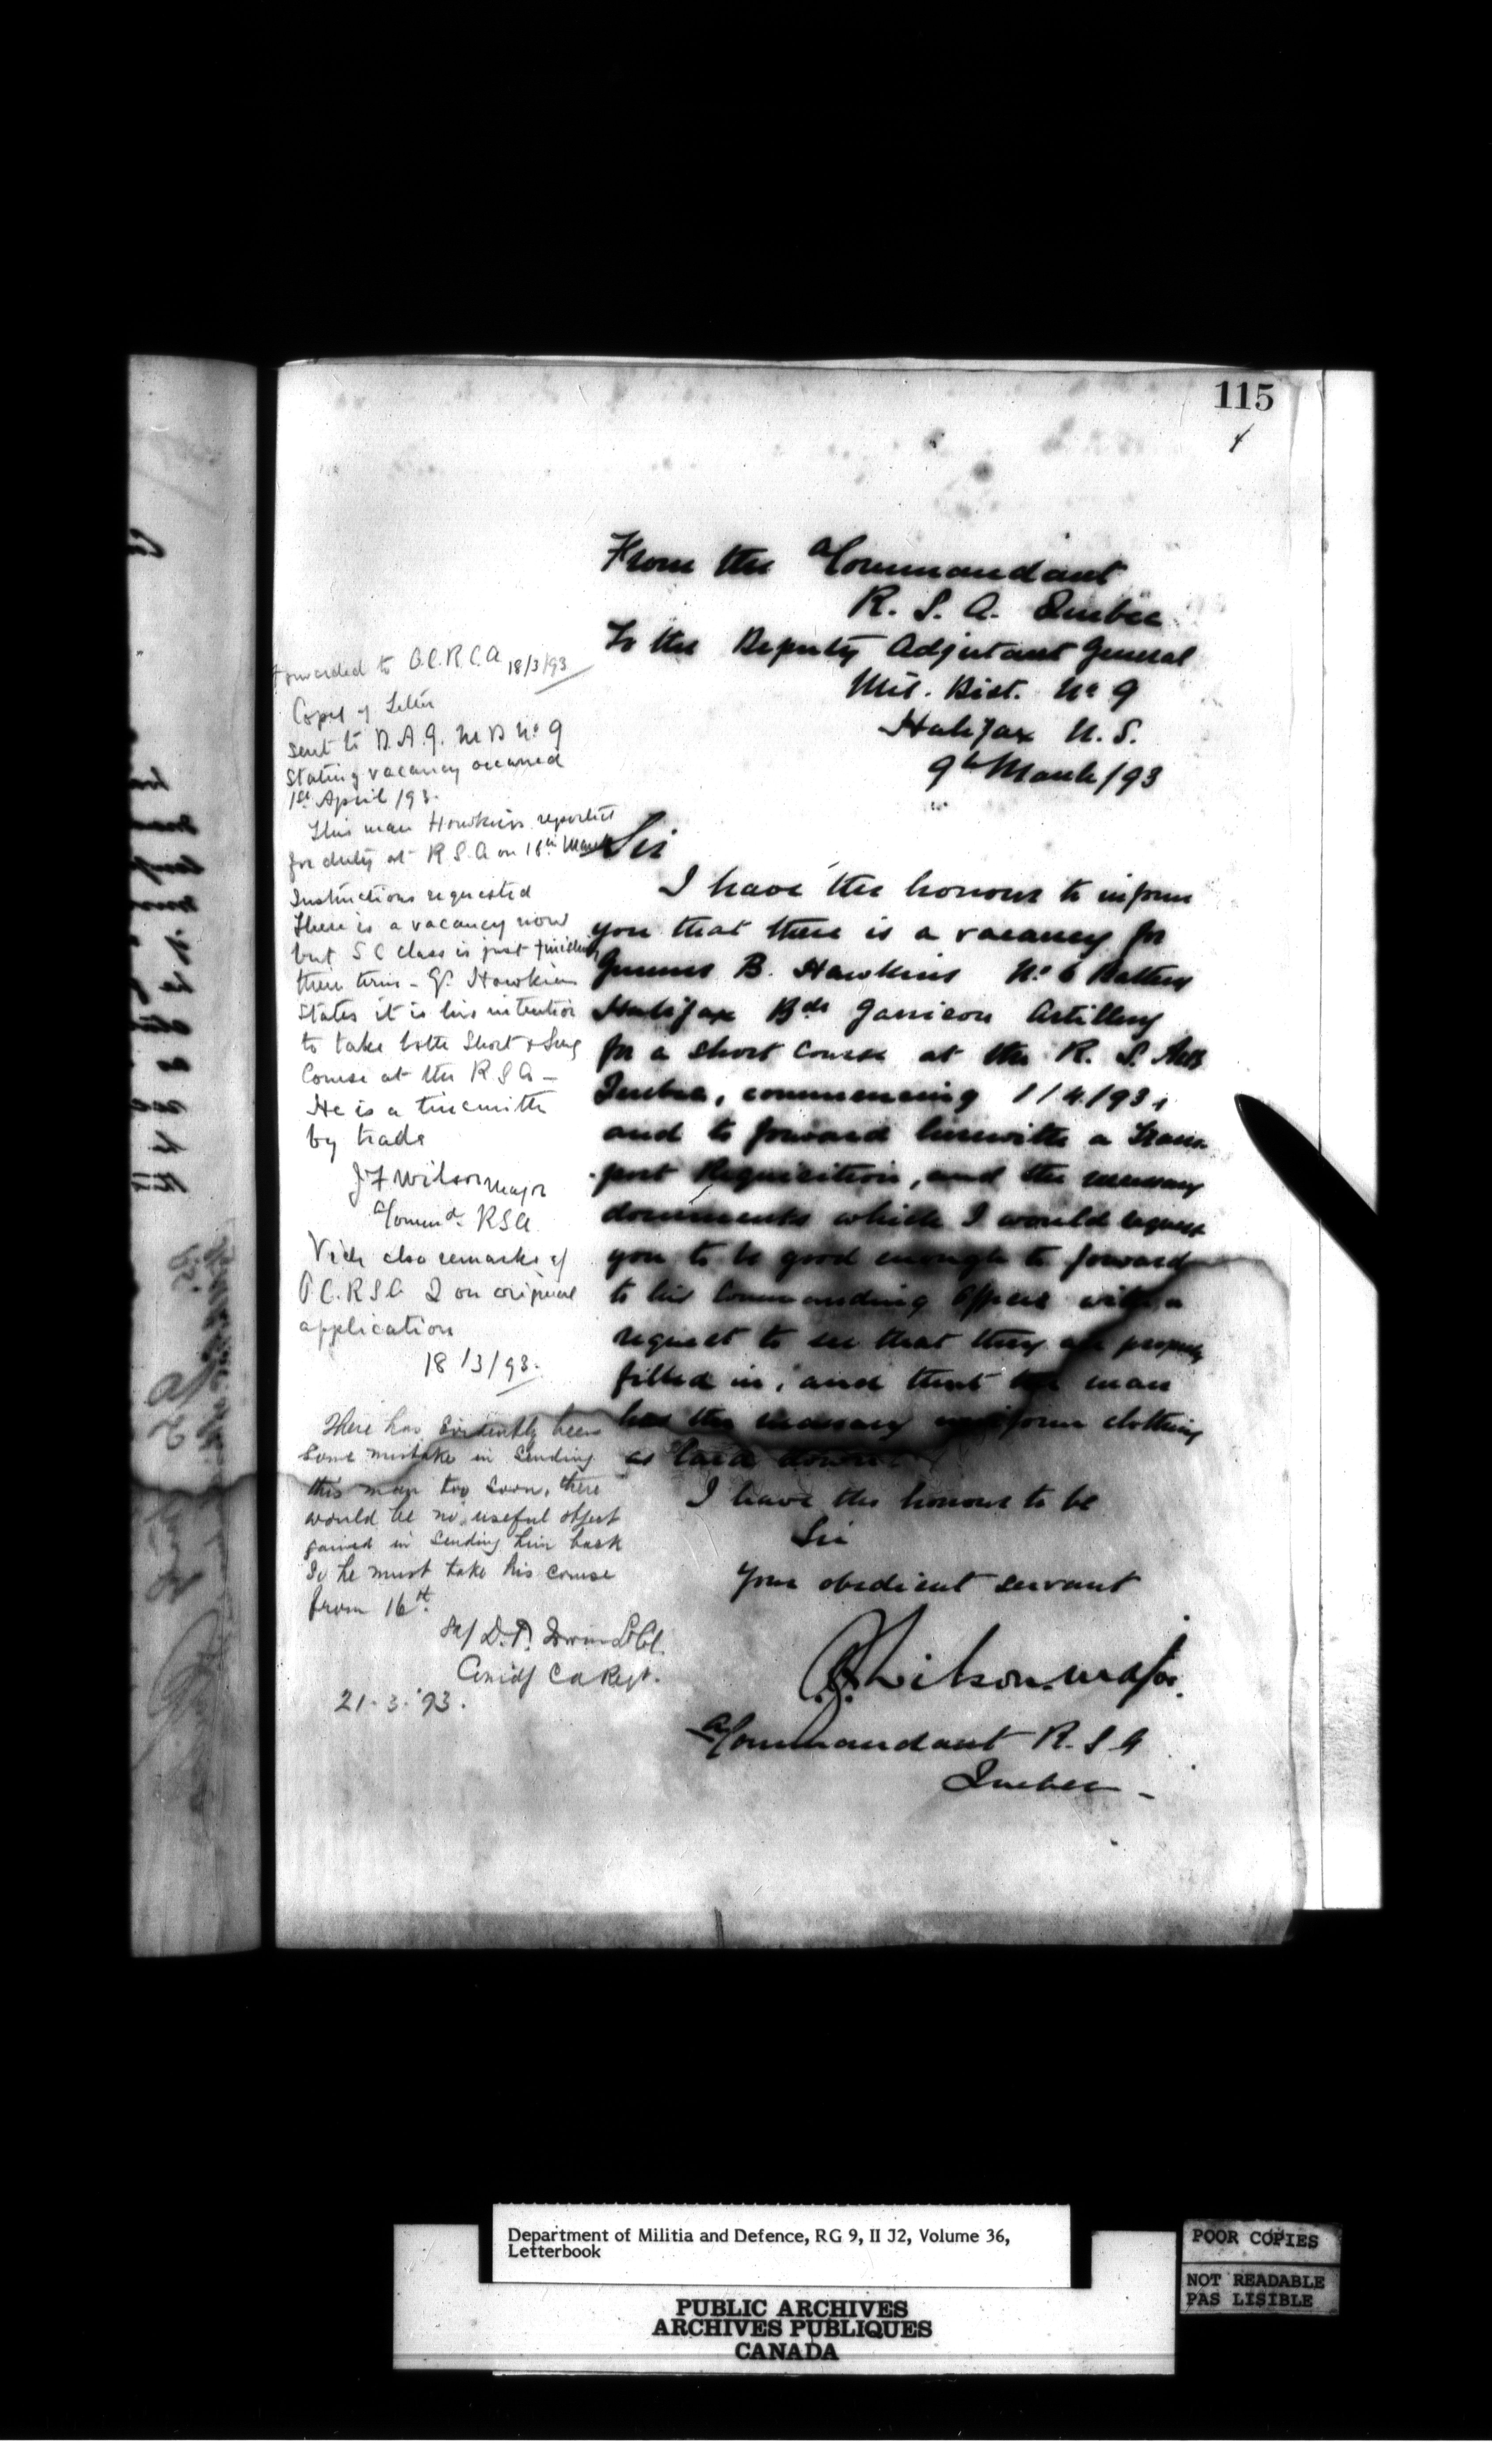 115
From the A/Commandant
R. S. A. Quebec
To the Deputy Adjutant General
Mil. Dist. No 9
Halifax N. S.
9th March /93
Sir
I have the honour to inform
you that there is a vacancy for
Gunner B. Hawkins No 6 Battery
Halifax Bde Garrison Artillery
for a short course at the R. S. Arty
Quebec, commencing 1/4/93,
and to forward herewith a Trans-
port Requisition, and the necessary
documents which I would request
you to be good enough to forward
to his Commanding Officer with a
request to see that they are properly
filled in, and that the man
has the necessary uniform clothing
as laid down.
I have the honour to be
Sir
Your obedient servant
J F Wilson. Major.
A/Commandant R. S. A
Quebec -
Forwarded to O.C.R.C.A 18/3/93
Copy of Letter
sent to D.A.G. M D No 9
Stating vacancy occurred
1st April /93.
This man Hawkins reported
for duty at R S A on 16th March
Instructions requested
There is a vacancy now
but S C class is just finishing
their term - Gr. Hawkins
States it is his intention
to take both Short & Long
Course at the R S A -
He is a tinsmith
by trade
J F Wilson Major
A/Command. RSA
Vide also remarks of
O.C.R.S.A. Q on original
application
18/3/93.
There has evidently been
some mistake in sending
this man too soon, there
would be no useful object
gained in sending him back
So he must take his course
from 16th.
Sd/ D. T. Irwin Lt Col.
Comdg C A Regt.
21-3-'93.
Department of Militia and Defence, RG 9, II J2, Volume 36,
Letterbook
PUBLIC ARCHIVES
ARCHIVES PUBLIQUES
CANADA
POOR COPIES
NOT READABLE
PAS LISIBLE